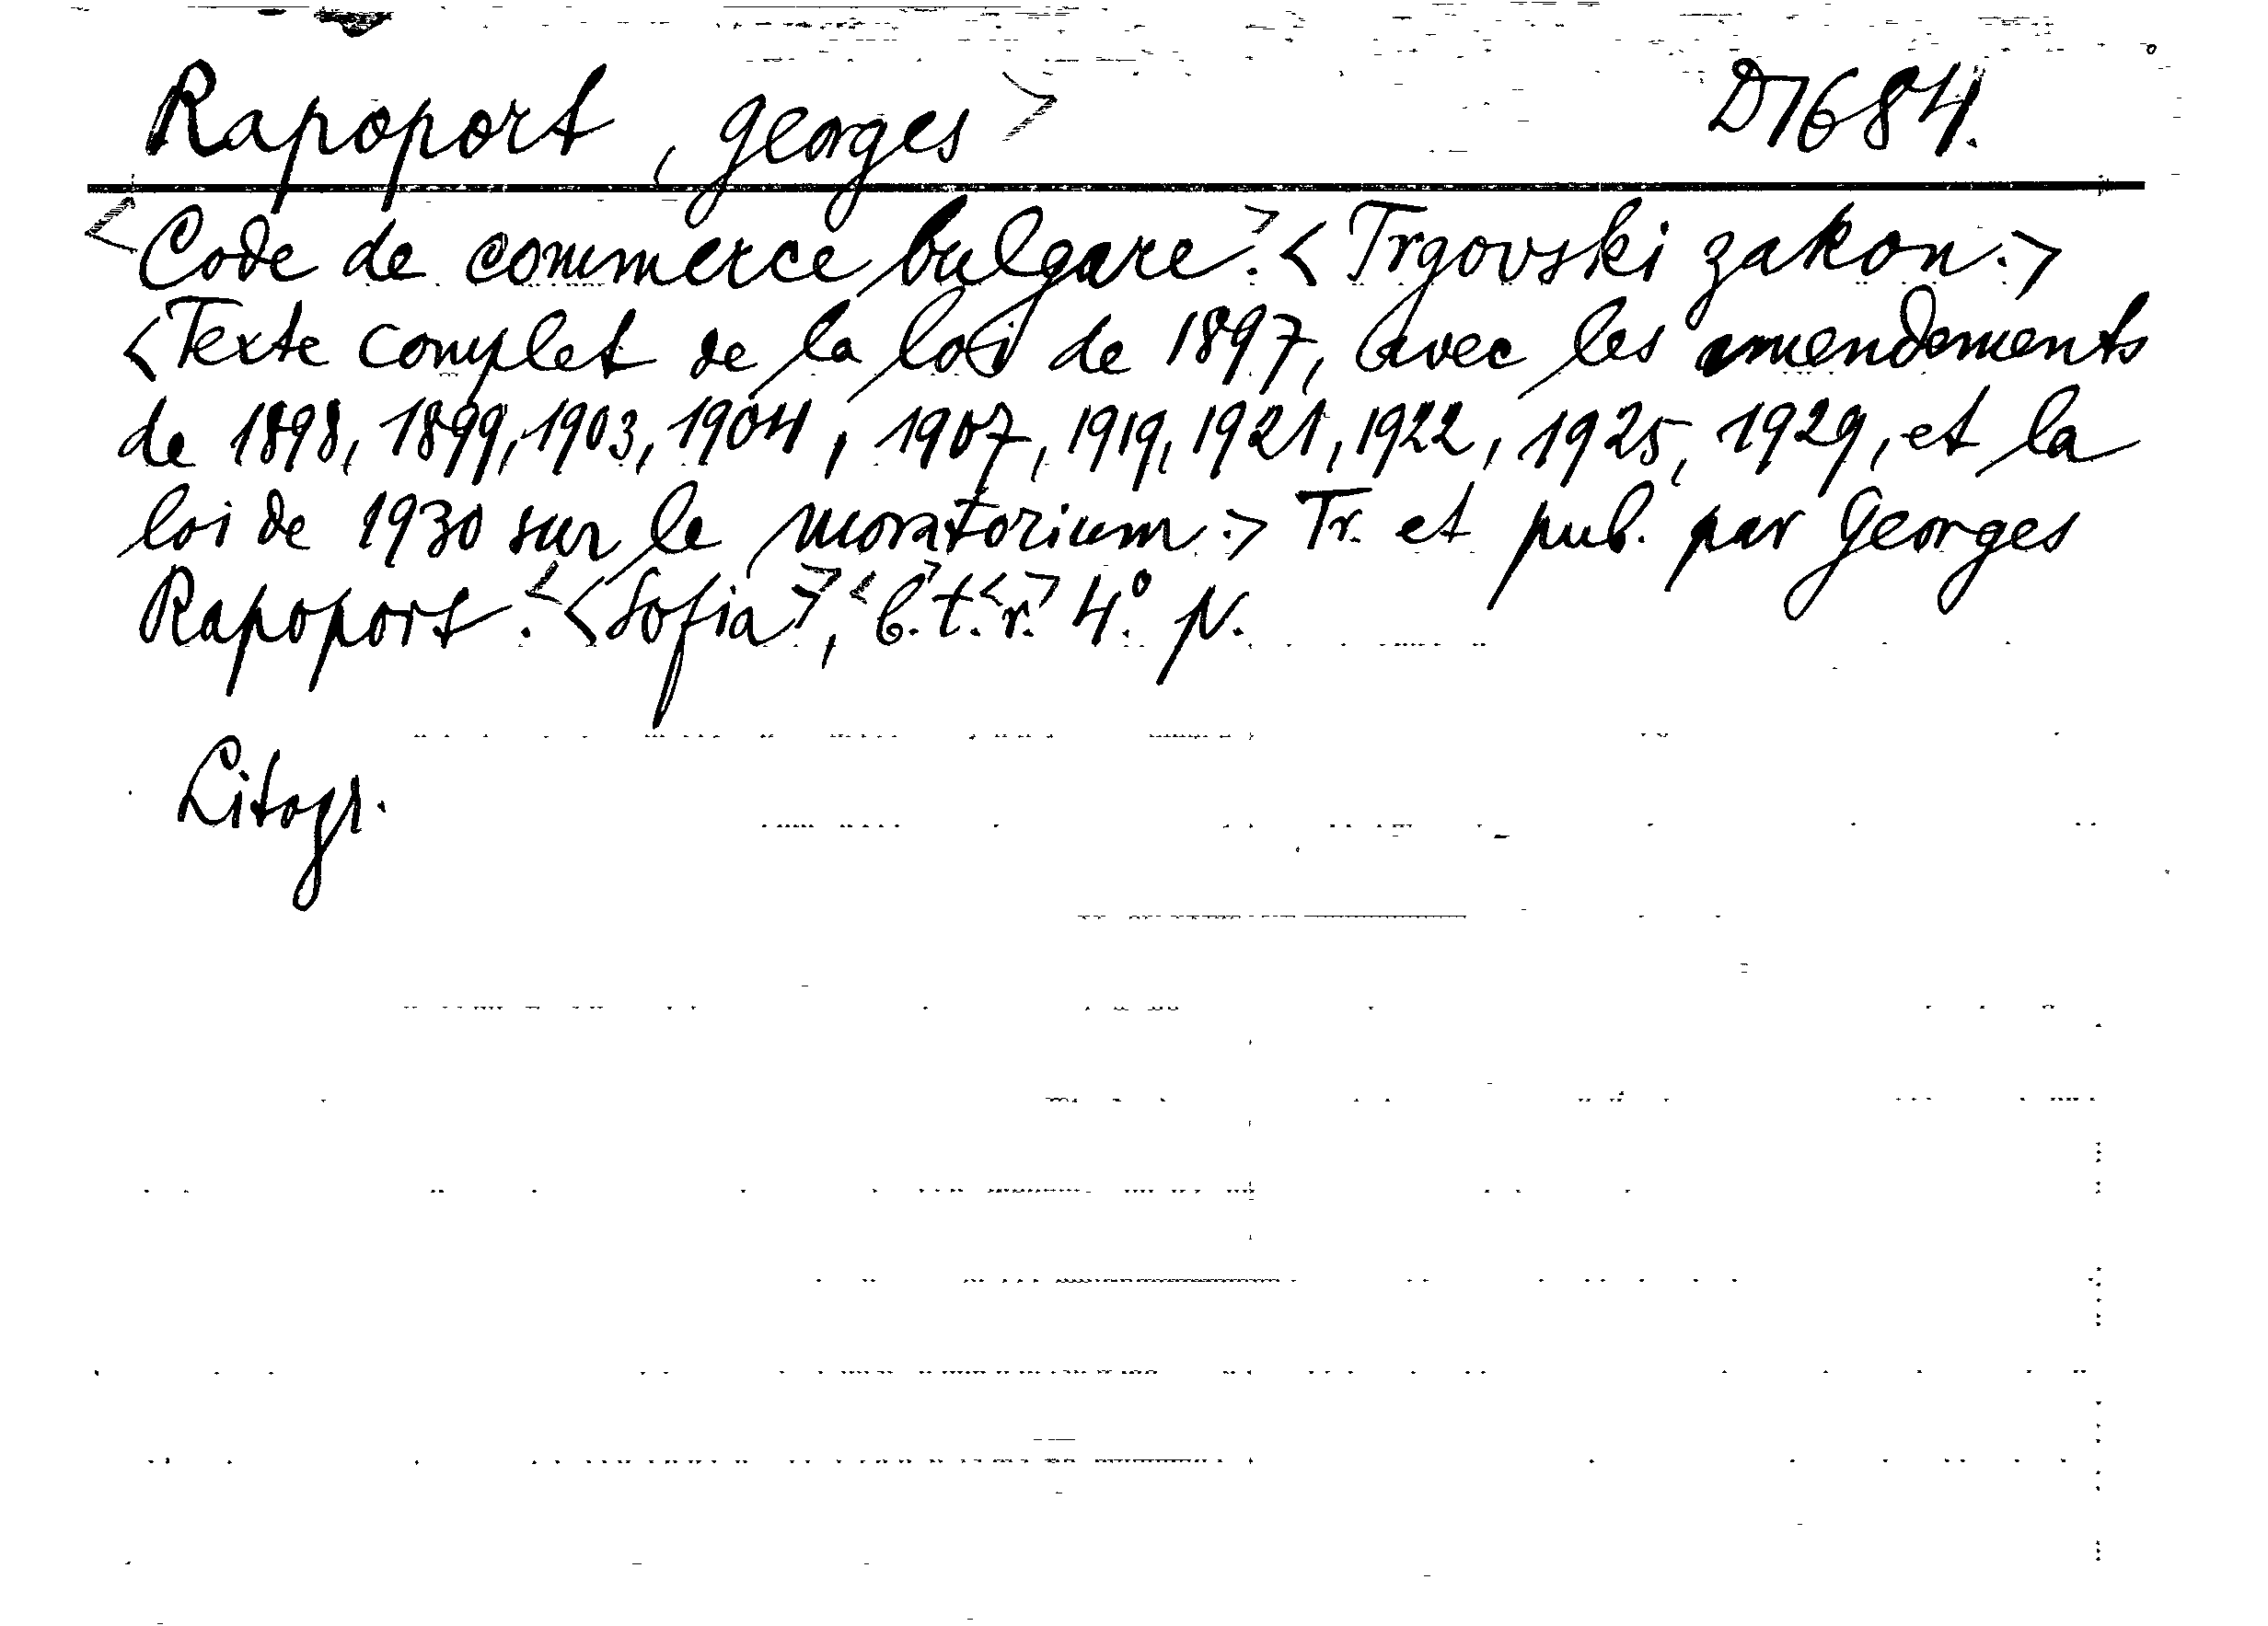 Rapoport, Georges> D7684.
<Code de commerce bulgare.> <Trgovski zakon.>
<Texte complet de la loi de 1897, avec les amendements
de 1898, 1899, 1903, 1904, 1907, 1919, 1921, 1922, 1925, 1929, et la
loi de 1930 sur le moratorium.> Tr. et pub. par Georges
Rapoport. <<Sofia>>, <b.>t.<r.> 4°. N.
Litogr.